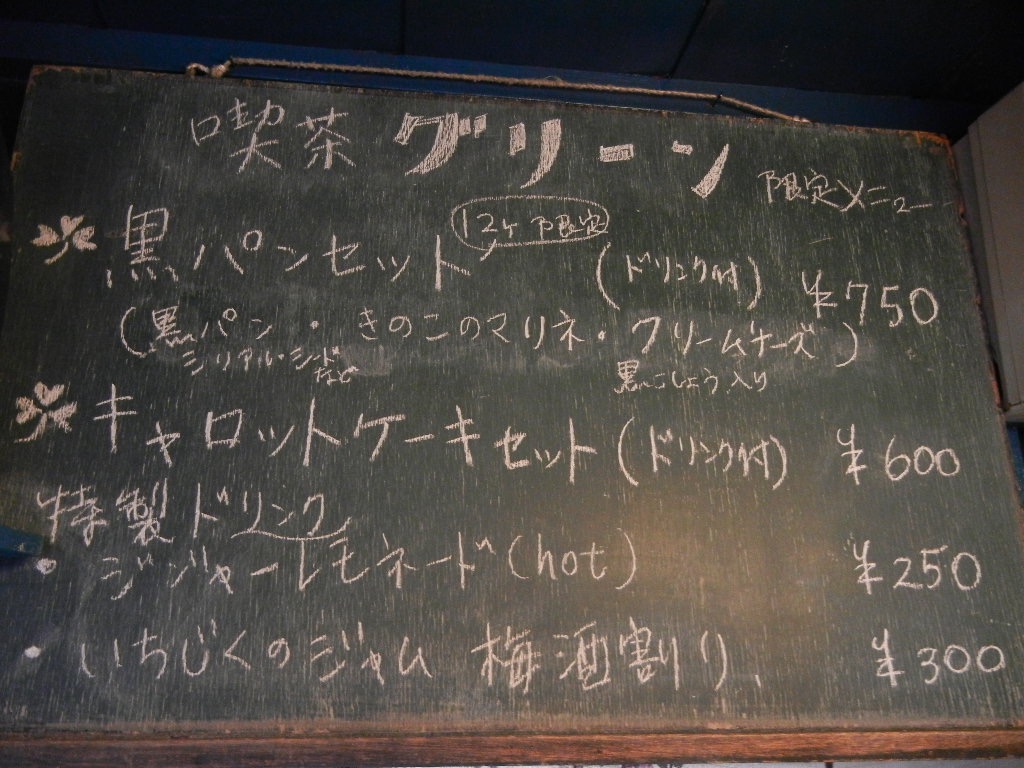 喫茶 グリーン 限定メニュー
黒パンセット 12ヶ限定 (ドリンク付) ¥750
(黒パン・きのこのマリネ・クリームチーズ)
シリアル・シードなど 黒こしょう入り
キャロットケーキセット (ドリンク付) ¥600
特製ドリンク
・ジンジャーレモネード (hot) ¥250
・いちじくのジャム 梅酒割り ¥300